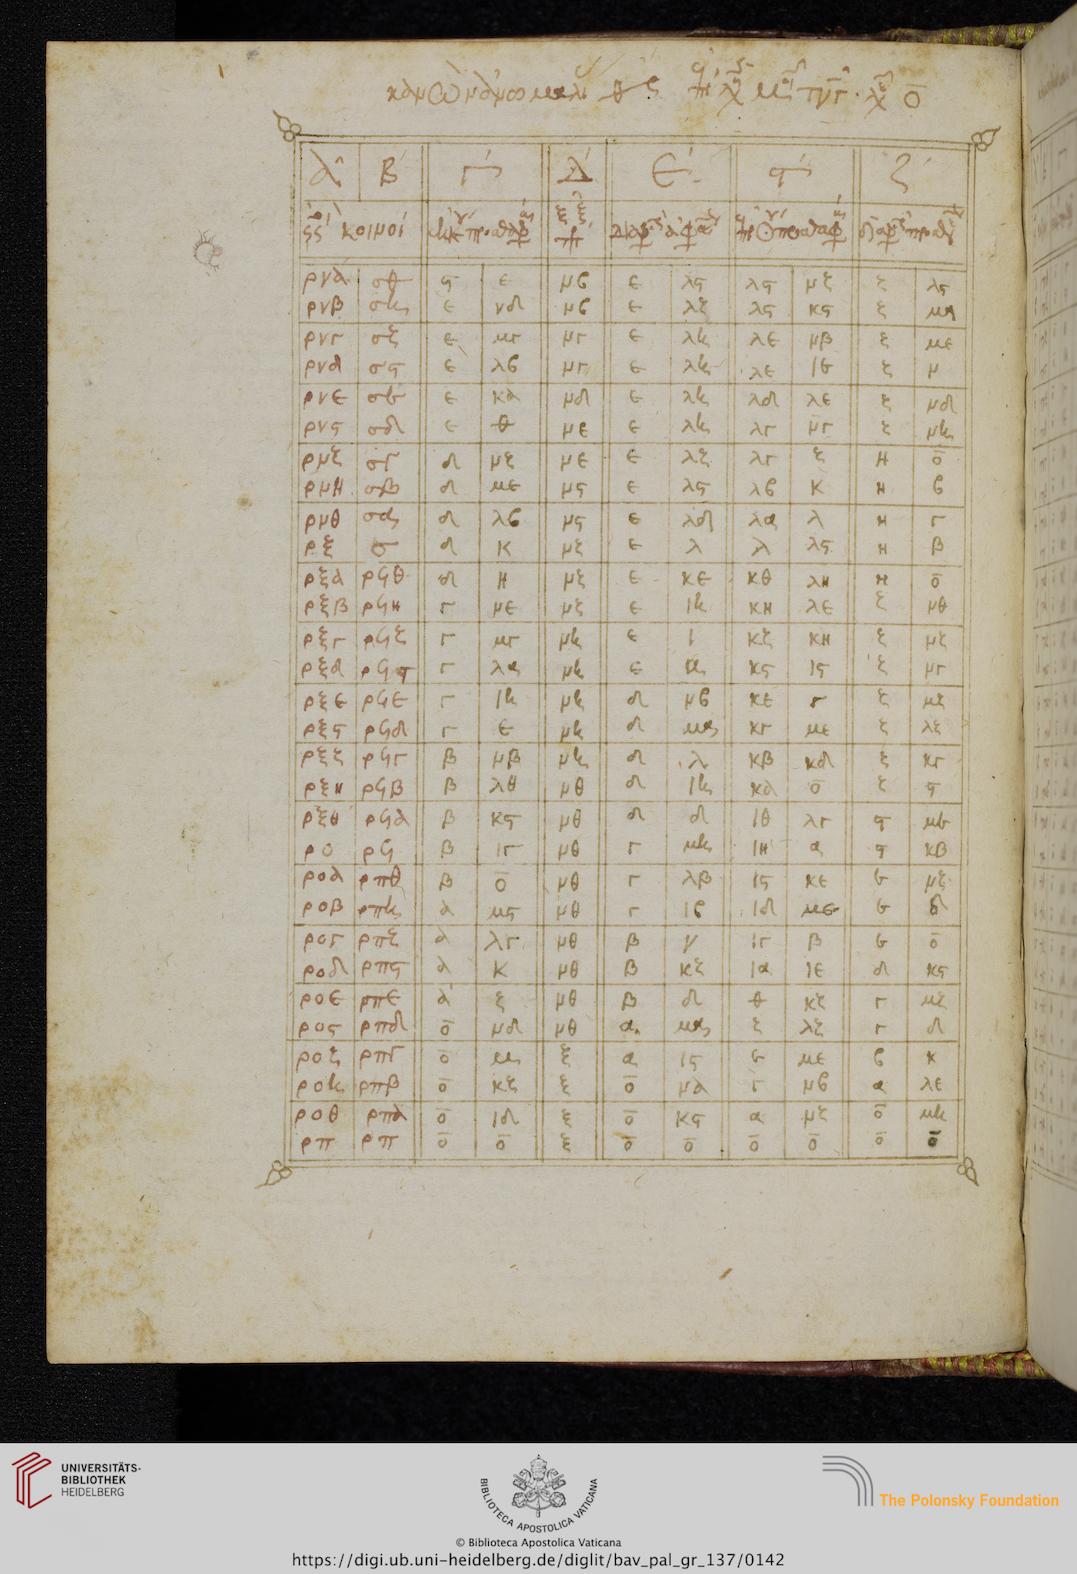 α β γ δ ε ϛ ζ
ρνα σθ ϛ ε μβ ε λϛ λϛ μζ ζ λϛ
ρνβ ση ε νδ μβ ε λζ λϛ κϛ ζ μα
ρνγ σζ ε μγ μγ ε λη λε μβ ζ με
ρνδ σϛ ε λβ μγ ε λη λε ιϛ ζ μ
ρνε σε ε κα μδ ε λη λδ λε ζ μδ
ρνϛ σδ ε θ με ε λη λγ μγ ζ μη
ρμζ σγ δ μζ με ε λζ λγ ζ η ο
ρμη σβ δ με μϛ ε λϛ λβ κ η β
ρμθ σα δ λβ μϛ ε λδ λα λ η γ
ρξ σ δ κ μζ ε λ λ λϛ η β
ρξα ρϟθ δ η μζ ε κε κθ λη η ο
ρξβ ρϟη γ με μζ ε ιη κη λε ζ μθ
ρξγ ρϟζ γ μγ μη ε ι κζ κη ζ μζ
ρξδ ρϟϛ γ λα μη ε α κϛ ιϛ ζ μγ
ρξε ρϟε γ ιη μη δ μβ κε γ ζ μζ
ρξϛ ρϟδ γ ε μη δ μα κγ με ζ λζ
ρξζ ρϟγ β μβ μη δ λ κβ κδ ζ κγ
ρξη ρϟβ β λθ μθ δ ιη κα ο ζ ϛ
ρξθ ρϟα β κϛ μθ δ δ ιθ λγ ϛ μϛ
ρο ρϟ β ιγ μθ γ μη ιη α ϛ κβ
ροα ρπθ β ο μθ γ λβ ιϛ κε ε μζ
ροβ ρπη α μϛ μθ γ ιβ ιδ με ε δ
ρογ ρπζ α λγ μθ β ν ιγ β ε ο
ροδ ρπϛ α κ μθ β κζ ια ιε δ κϛ
ροε ρπε α ζ μθ β δ θ κζ γ μζ
ροϛ ρπδ ο μδ μθ α μα ζ λζ γ δ
ροζ ρπγ ο μα ξ α ιϛ ε με β κ
ροη ρπβ ο κζ ξ ο μα γ μβ α λε
ροθ ρπα ο ιδ ξ ο κϛ α μζ ο μη
ρπ ρπ ο ο ξ ο ο ο ο ο ο
UNIVERSITÄTS-
BIBLIOTHEK
HEIDELBERG
BIBLIOTECA APOSTOLICA VATICANA
The Polonsky Foundation
© Biblioteca Apostolica Vaticana
https://digi.ub.uni-heidelberg.de/diglit/bav_pal_gr_137/0142